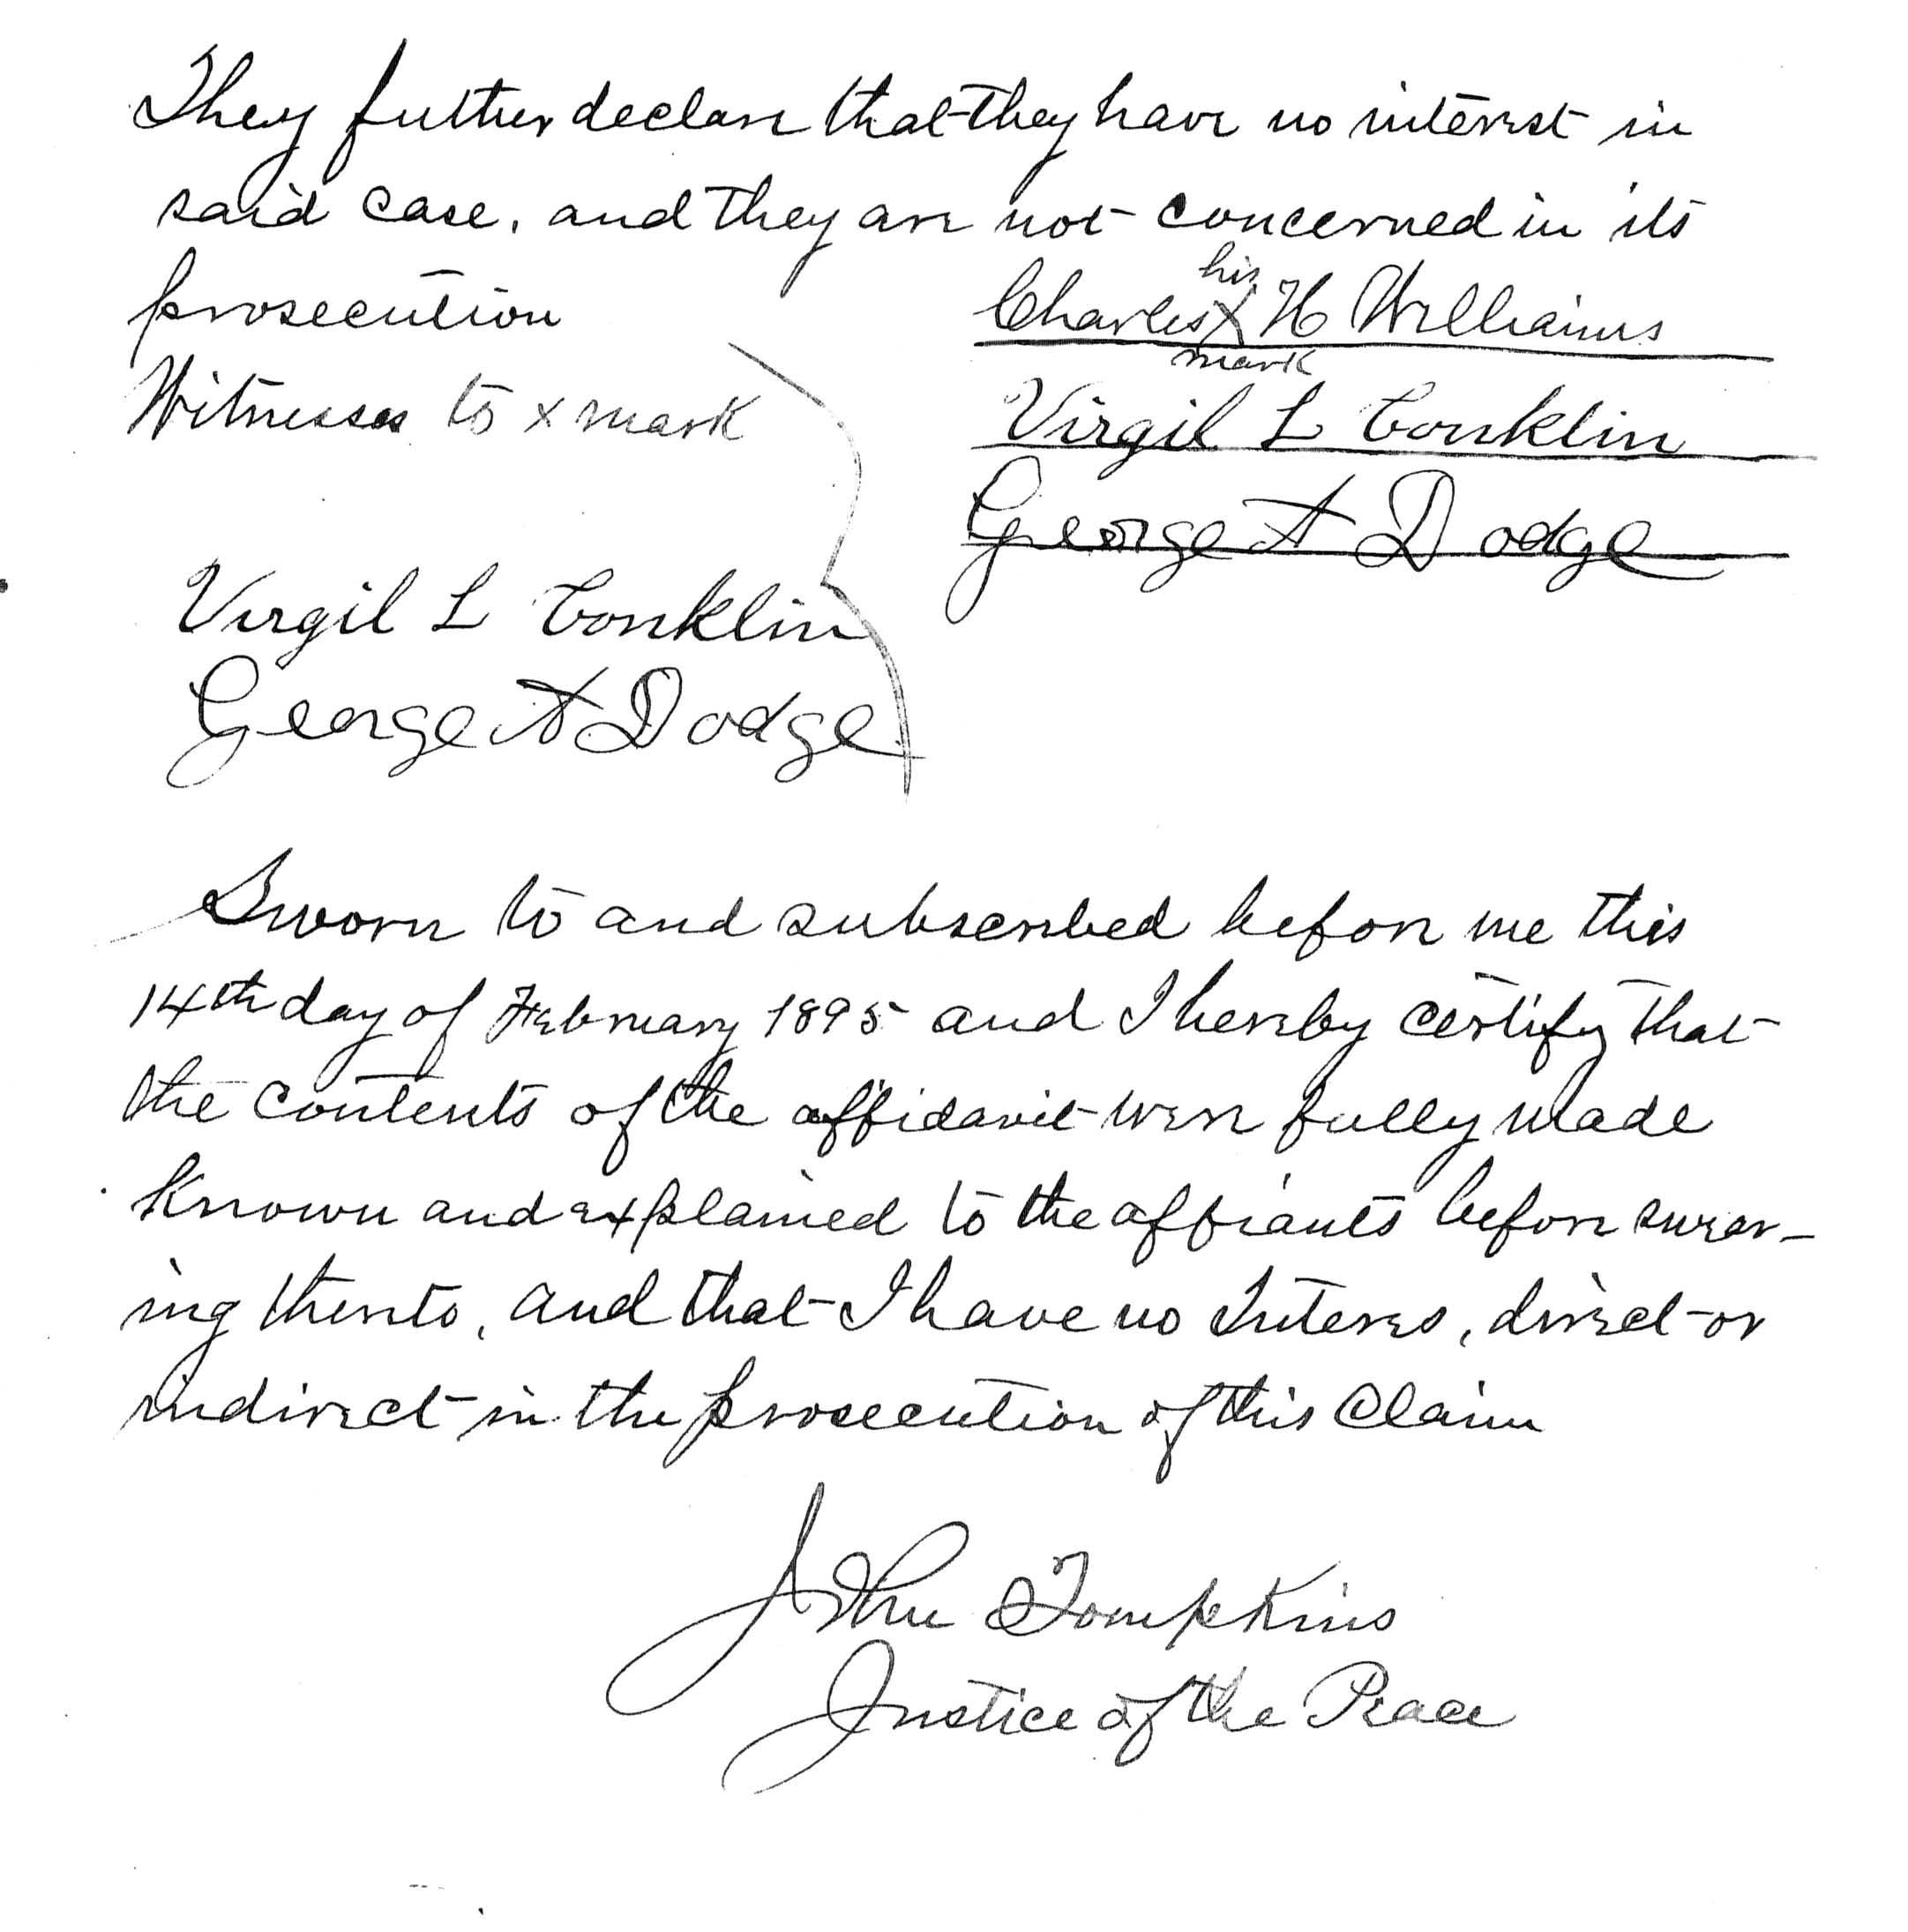 They futher declare that they have no interest in
said case, and they are not concerned in its
prosecution
his
Charles X H Williams
mark
Witnesses to x mark
Virgil L Conklin
George A Dodge
Virgil L Conklin
George A Dodge
Sworn to and subscribed before me this
14th day of February 1895 and I hereby certify that
the contents of the affidavit were fully made
known and explained to the affiants before swear-
ing thereto, and that I have no Interes, direct or
indirect in the prosecution of this Claim
John Tompkins
Justice of the Peace